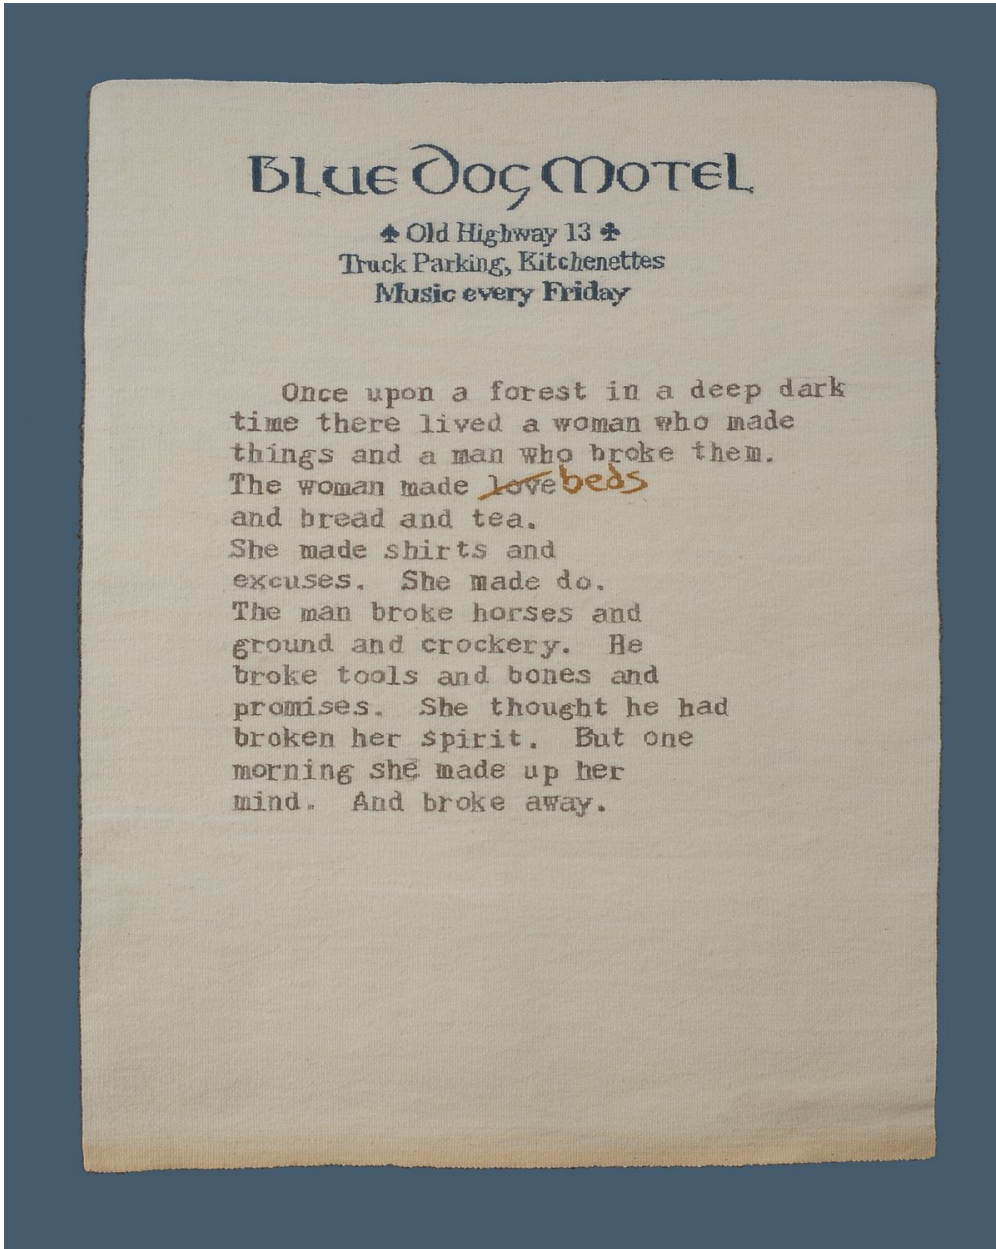 Blue Dog Motel
♣ Old Highway 13 ♣
Truck Parking, Kitchenettes
Music every Friday
Once upon a forest in a deep dark
time there lived a woman who made
things and a man who broke them.
The woman made love beds
and bread and tea.
She made shirts and
excuses. She made do.
The man broke horses and
ground and crockery. He
broke tools and bones and
promises. She thought he had
broken her spirit. But one
morning she made up her
mind. And broke away.